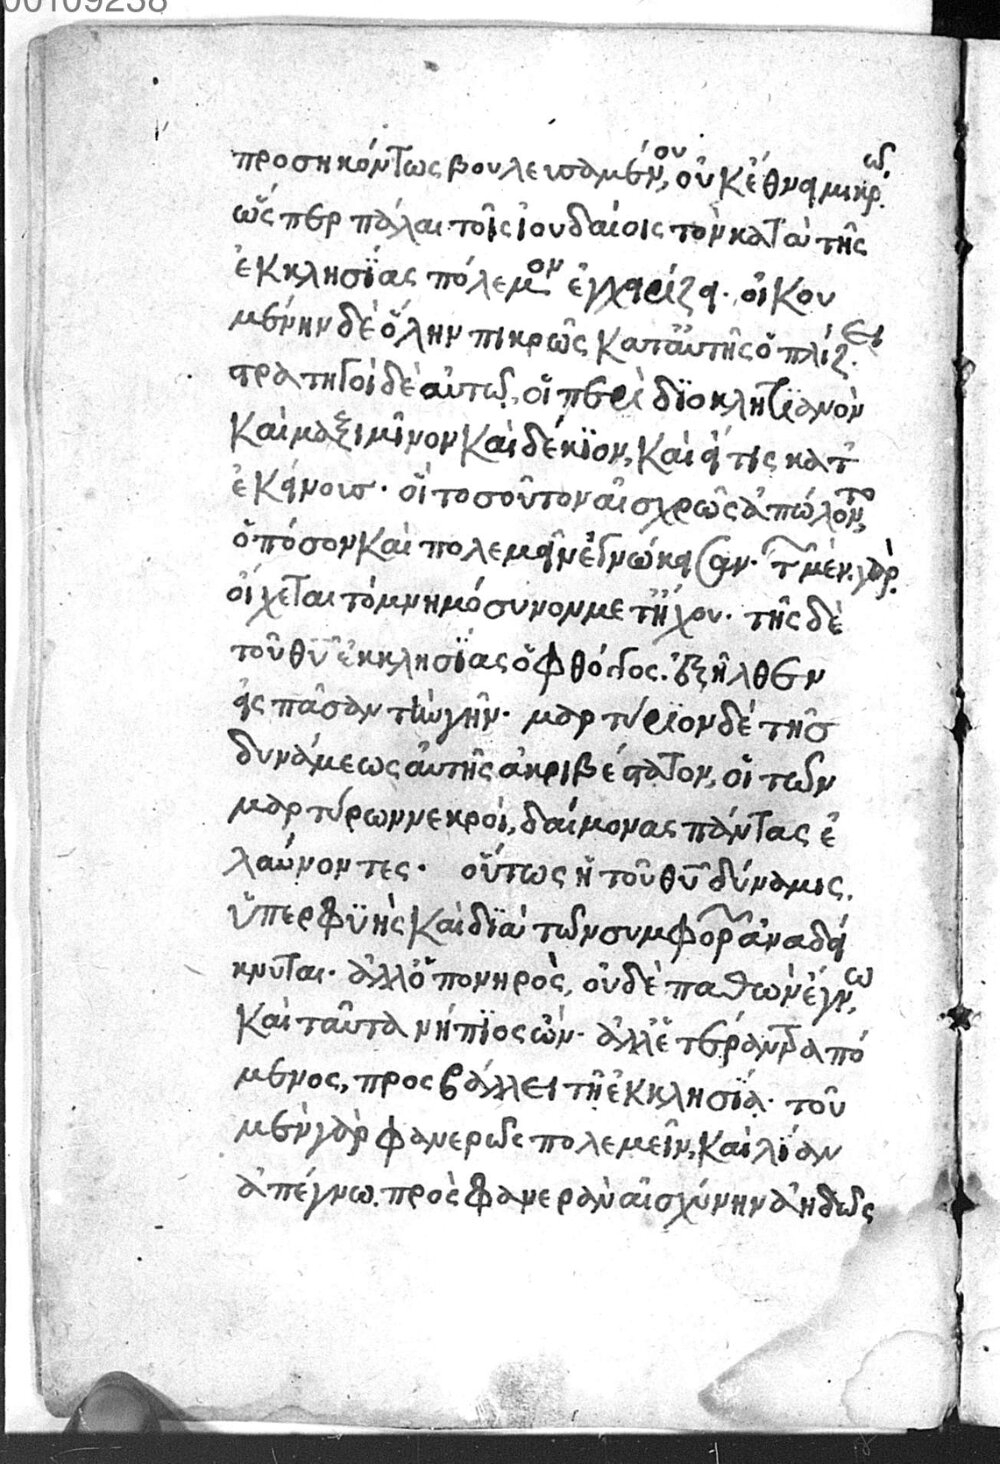 00109238
προσηκόντως βουλευσαμένου, οὐκ ἔθνει μικρῶ.
ὥσπερ πάλαι τοῖς ἰουδαίοις τὸν κατὰ τῆς
ἐκκλησΐας πόλεμον ἐγχειρίζει. οἰκου
μένην δὲ ὅλην πικρῶς κατ' αὐτῆς ὁπλίζει.
στρατηγοὶ δὲ αὐτῶ, οἱ περὶ διοκλητϊανὸν
καὶ μαξιμῖνον καὶ δέκϊον, καὶ εἴ τις κατ'
ἐκείνους. οἳ τοσοῦτον αἰσχρῶς ἀπώλοντο,
ὁπόσον καὶ πολεμεῖν ἐγνώκεισαν. τῶν μὲν γὰρ
οἴχεται τὸ μνημόσυνον μετ' ἤχου. τῆς δὲ
τοῦ θῦ ἐκκλησΐας ὁ φθόγγος ἐξῆλθεν
εἰς πᾶσαν τὴν γῆν. μαρτύριον δὲ τῆς
δυνάμεως αὐτῆς ἀκριβέστατον, οἱ τῶν
μαρτύρων νεκροὶ, δαίμονας πάντας ἐ
λαύνοντες. οὕτως ἡ τοῦ θῦ δύναμις,
ὑπερφυὴς καὶ διὰ τῶν συμφορῶν ἀναδεί
κνυται. ἀλλ' ὁ πονηρὸς, οὐδὲ παθὼν ἔγνω,
καὶ ταῦτα νήπϊος ὤν. ἀλλ' ἑτέραν τραπό
μενος, προσβάλλει τῆ ἐκκλησΐα. τοῦ
μὲν γὰρ φανερῶς πολεμεῖν, καὶ λίαν
ἀπέγνω. πρὸς φανερὰν αἰσχύνην ἀηδῶς